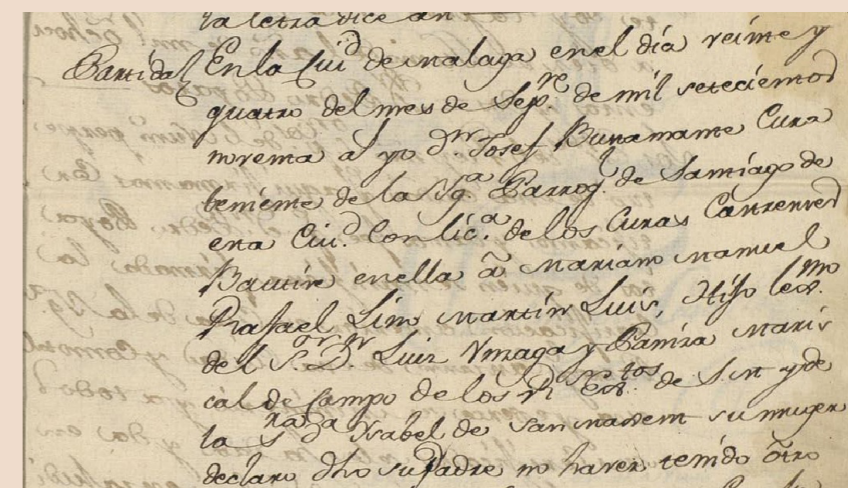 la letra dice asi
Partida En la Ciu.d de malaga en el día veinte y
quatro del mes de Sep.re de mil setecientos
noventa a.s yo D.n Josef Bustamante Cura
teniente de la Yg.a Parroq.l de Santiago de
esta Ciu.d Con lic.a de los Curas Castrenses
Bautice en ella a Mariano Manuel
Rafael Lino Martin Luis, Hijo lex.mo
del S.or D.n Luis Unzaga y Ameza Maris
cal de Campo de los R.s Ex.tos de S.M y de
la S.ra D.a Ysabel de San maxent su muger
declaro dho su Padre no haver tenido otro